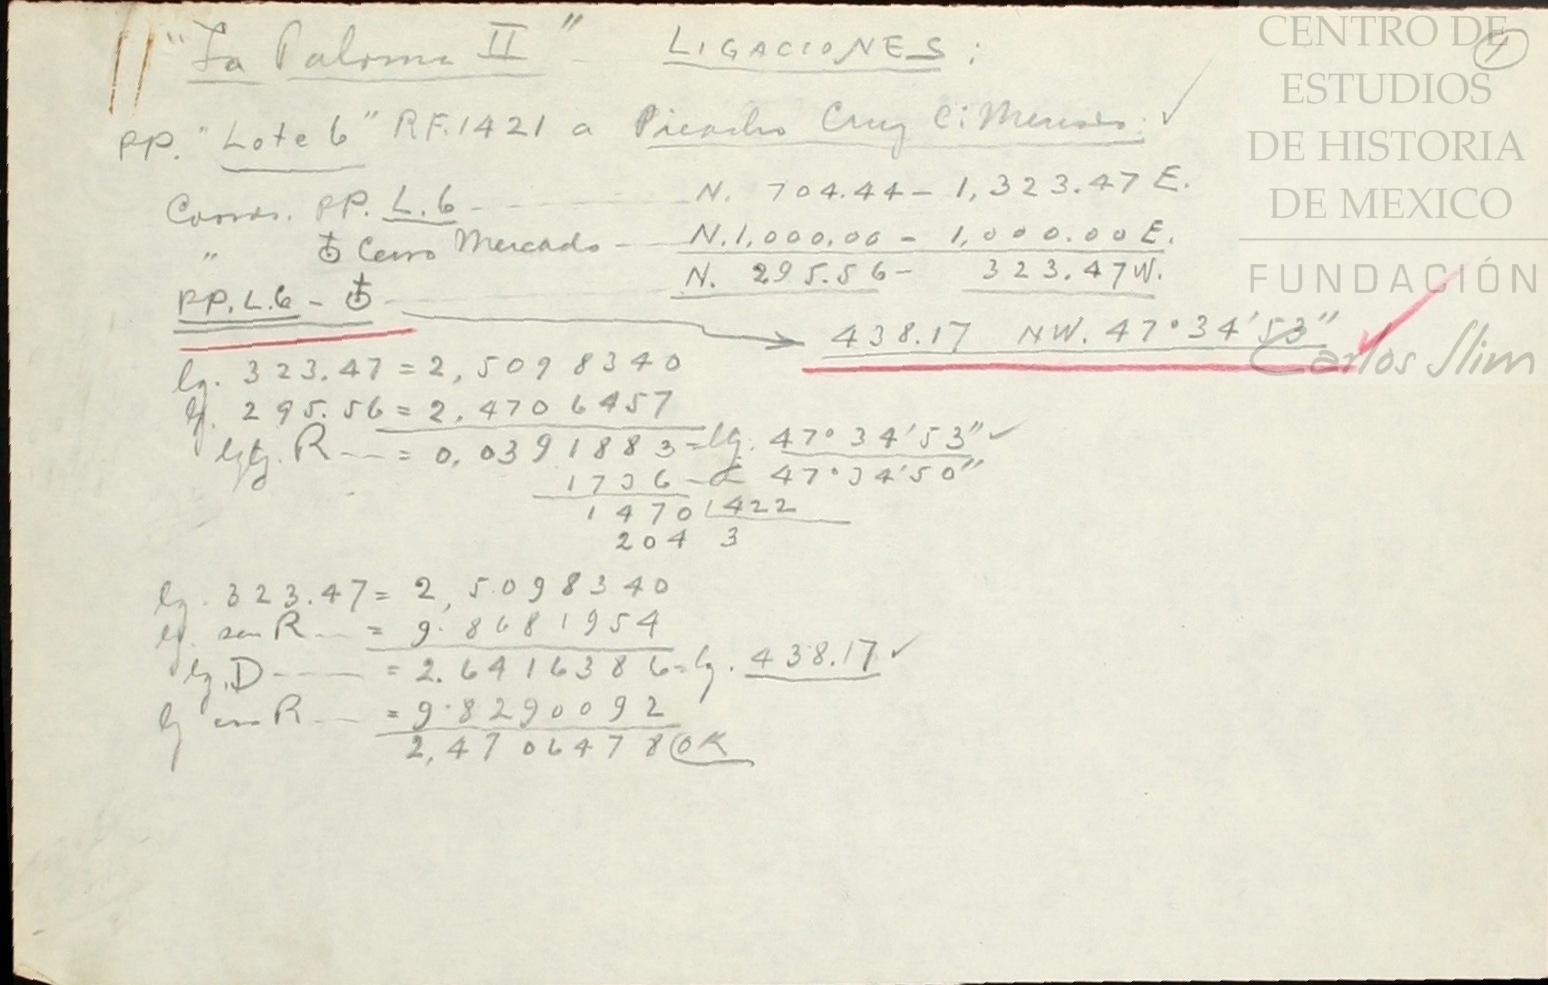 "La Paloma II" LIGACIONES:
1
PP. "Lote 6" R.F. 1421 a Picacho Cruz C. Mercado. ✓
Coords. PP. L.6 - N. 704.44 - 1,323.47 E.
" ♁ Cerro Mercado - N. 1,000.00 - 1,000.00 E.
N. 295.56 - 323.47 W.
PP. L.6 - ♁ → 438.17 NW. 47°34'53"
lg. 323.47 = 2,5098340
lg. 295.56 = 2.4706457
lg tg. R --- = 0,0391883 = lg. 47°34'53" ✓
1736 - 47°34'50"
1470 | 422
204 3
lg. 323.47 = 2,5098340
lg. sen R --- = 9.8681954
lg. D --- = 2.6416386 = lg. 438.17 ✓
lg cos R --- = 9.8290092
2,4706478 OK
CENTRO DE
ESTUDIOS
DE HISTORIA
DE MEXICO
FUNDACIÓN
Carlos Slim